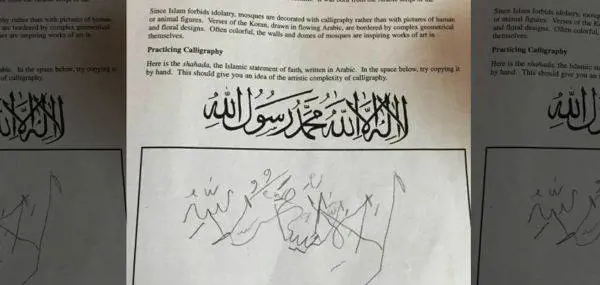 Since Islam forbids idolatry, mosques are decorated with calligraphy rather than with pictures of human
or animal figures. Verses of the Koran, drawn in flowing Arabic, are bordered by complex geometrical
and floral designs. Often colorful, the walls and domes of mosques are inspiring works of art in
themselves.
Practicing Calligraphy
Here is the shahada, the Islamic statement of faith, written in Arabic. In the space below, try copying it
by hand. This should give you an idea of the artistic complexity of calligraphy.
لا اله الا الله محمد رسول الله